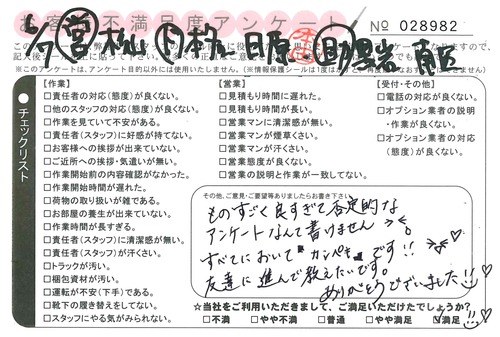 お客様不満足度アンケート
№ 028982
※このアンケートは、アンケート目的以外には使用いたしません。
チェックリスト
【作業】
□責任者の対応(態度)が良くない。
□他のスタッフの対応(態度)が良くない。
□作業を見ていて不安がある。
□責任者(スタッフ)に好感が持てない。
□お客様への挨拶が出来ていない。
□ご近所への挨拶・気遣いが無い。
□作業開始前の内容確認がなかった。
□作業開始時間が遅れた。
□荷物の取り扱いが雑である。
□お部屋の養生が出来ていない。
□作業時間が長すぎる。
□責任者(スタッフ)に清潔感が無い。
□責任者(スタッフ)が汗くさい。
□トラックが汚い。
□梱包資材が汚い。
□運転が不安(下手)である。
□靴下の履き替えをしてない。
□スタッフにやる気がみられない。
【営業】
□見積もり時間に遅れた。
□見積もり時間が長い。
□営業マンに清潔感が無い。
□営業マンが煙草くさい。
□営業マンが汗くさい。
□営業態度が良くない。
□営業の説明と作業が一致してない。
【受付・その他】
□電話の対応が良くない。
□オプション業者の説明・作業が良くない。
□オプション業者の対応(態度)が良くない。
その他、ご意見・ご要望等ありましたらお書き下さい。
ものすごく良すぎて否定的な
アンケートなんて書けません
すべてにおいてカンペキです!!
友達に進んで教えたいです。
ありがとうございました!!
☆当社をご利用いただきまして、ご満足いただけたでしょうか?
□不満 □やや不満 □普通 □やや満足 ☑満足